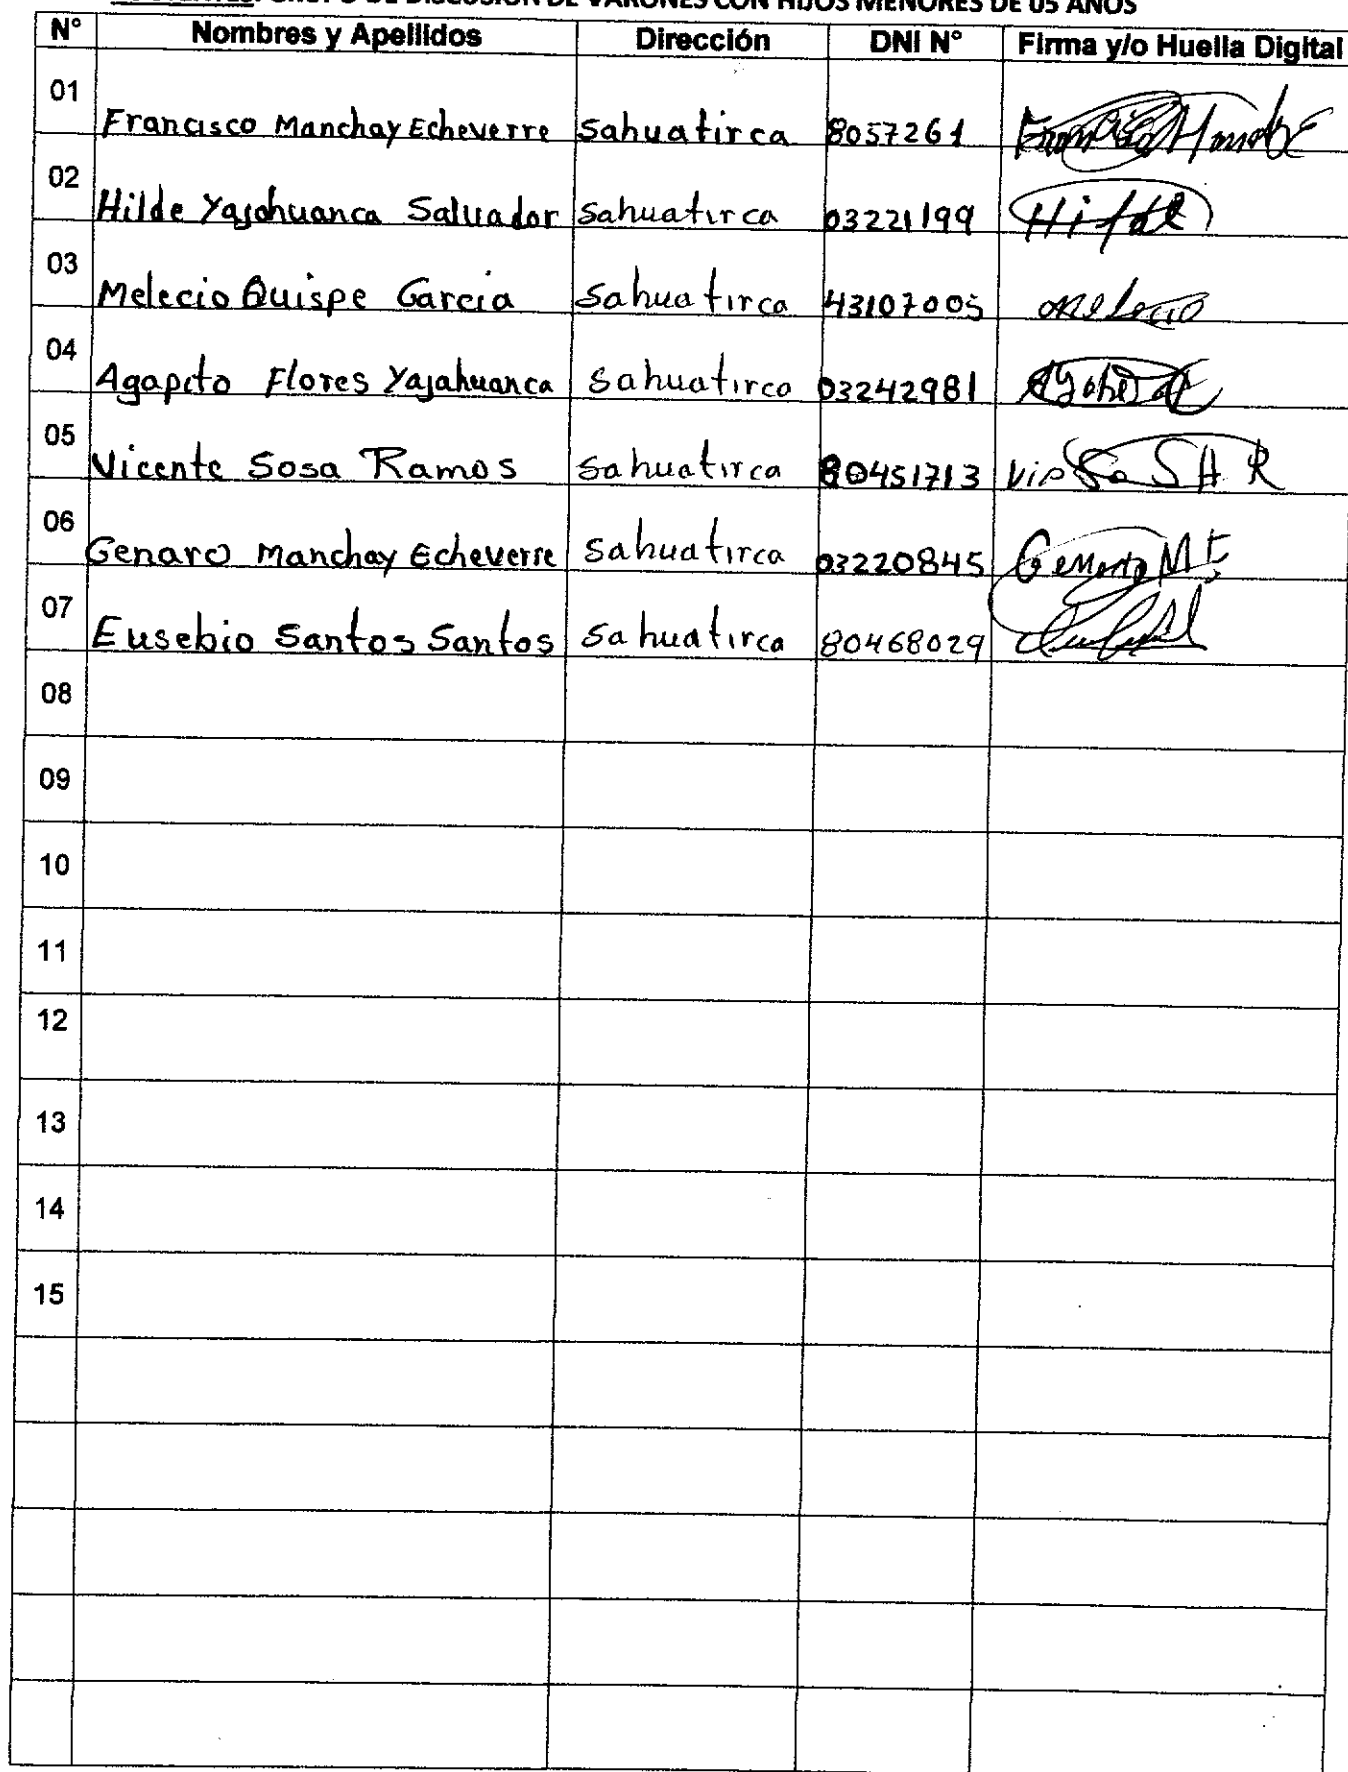 GRUPO DE DISCUSIÓN DE VARONES CON HIJOS MENORES DE 05 AÑOS
N° Nombres y Apellidos Dirección DNI N° Firma y/o Huella Digital
01 Francisco Manchay Echeverre Sahuatirca 8057261
02 Hilde Yajahuanca Salvador Sahuatirca 03221199 Hilde
03 Melecio Quispe Garcia Sahuatirca 43107005 melecio
04 Agapito Flores Yajahuanca Sahuatirca 03242981
05 Vicente Sosa Ramos Sahuatirca 80451713
06 Genaro Manchay Echeverre Sahuatirca 03220845 Genaro M E
07 Eusebio Santos Santos Sahuatirca 80468029
08
09
10
11
12
13
14
15